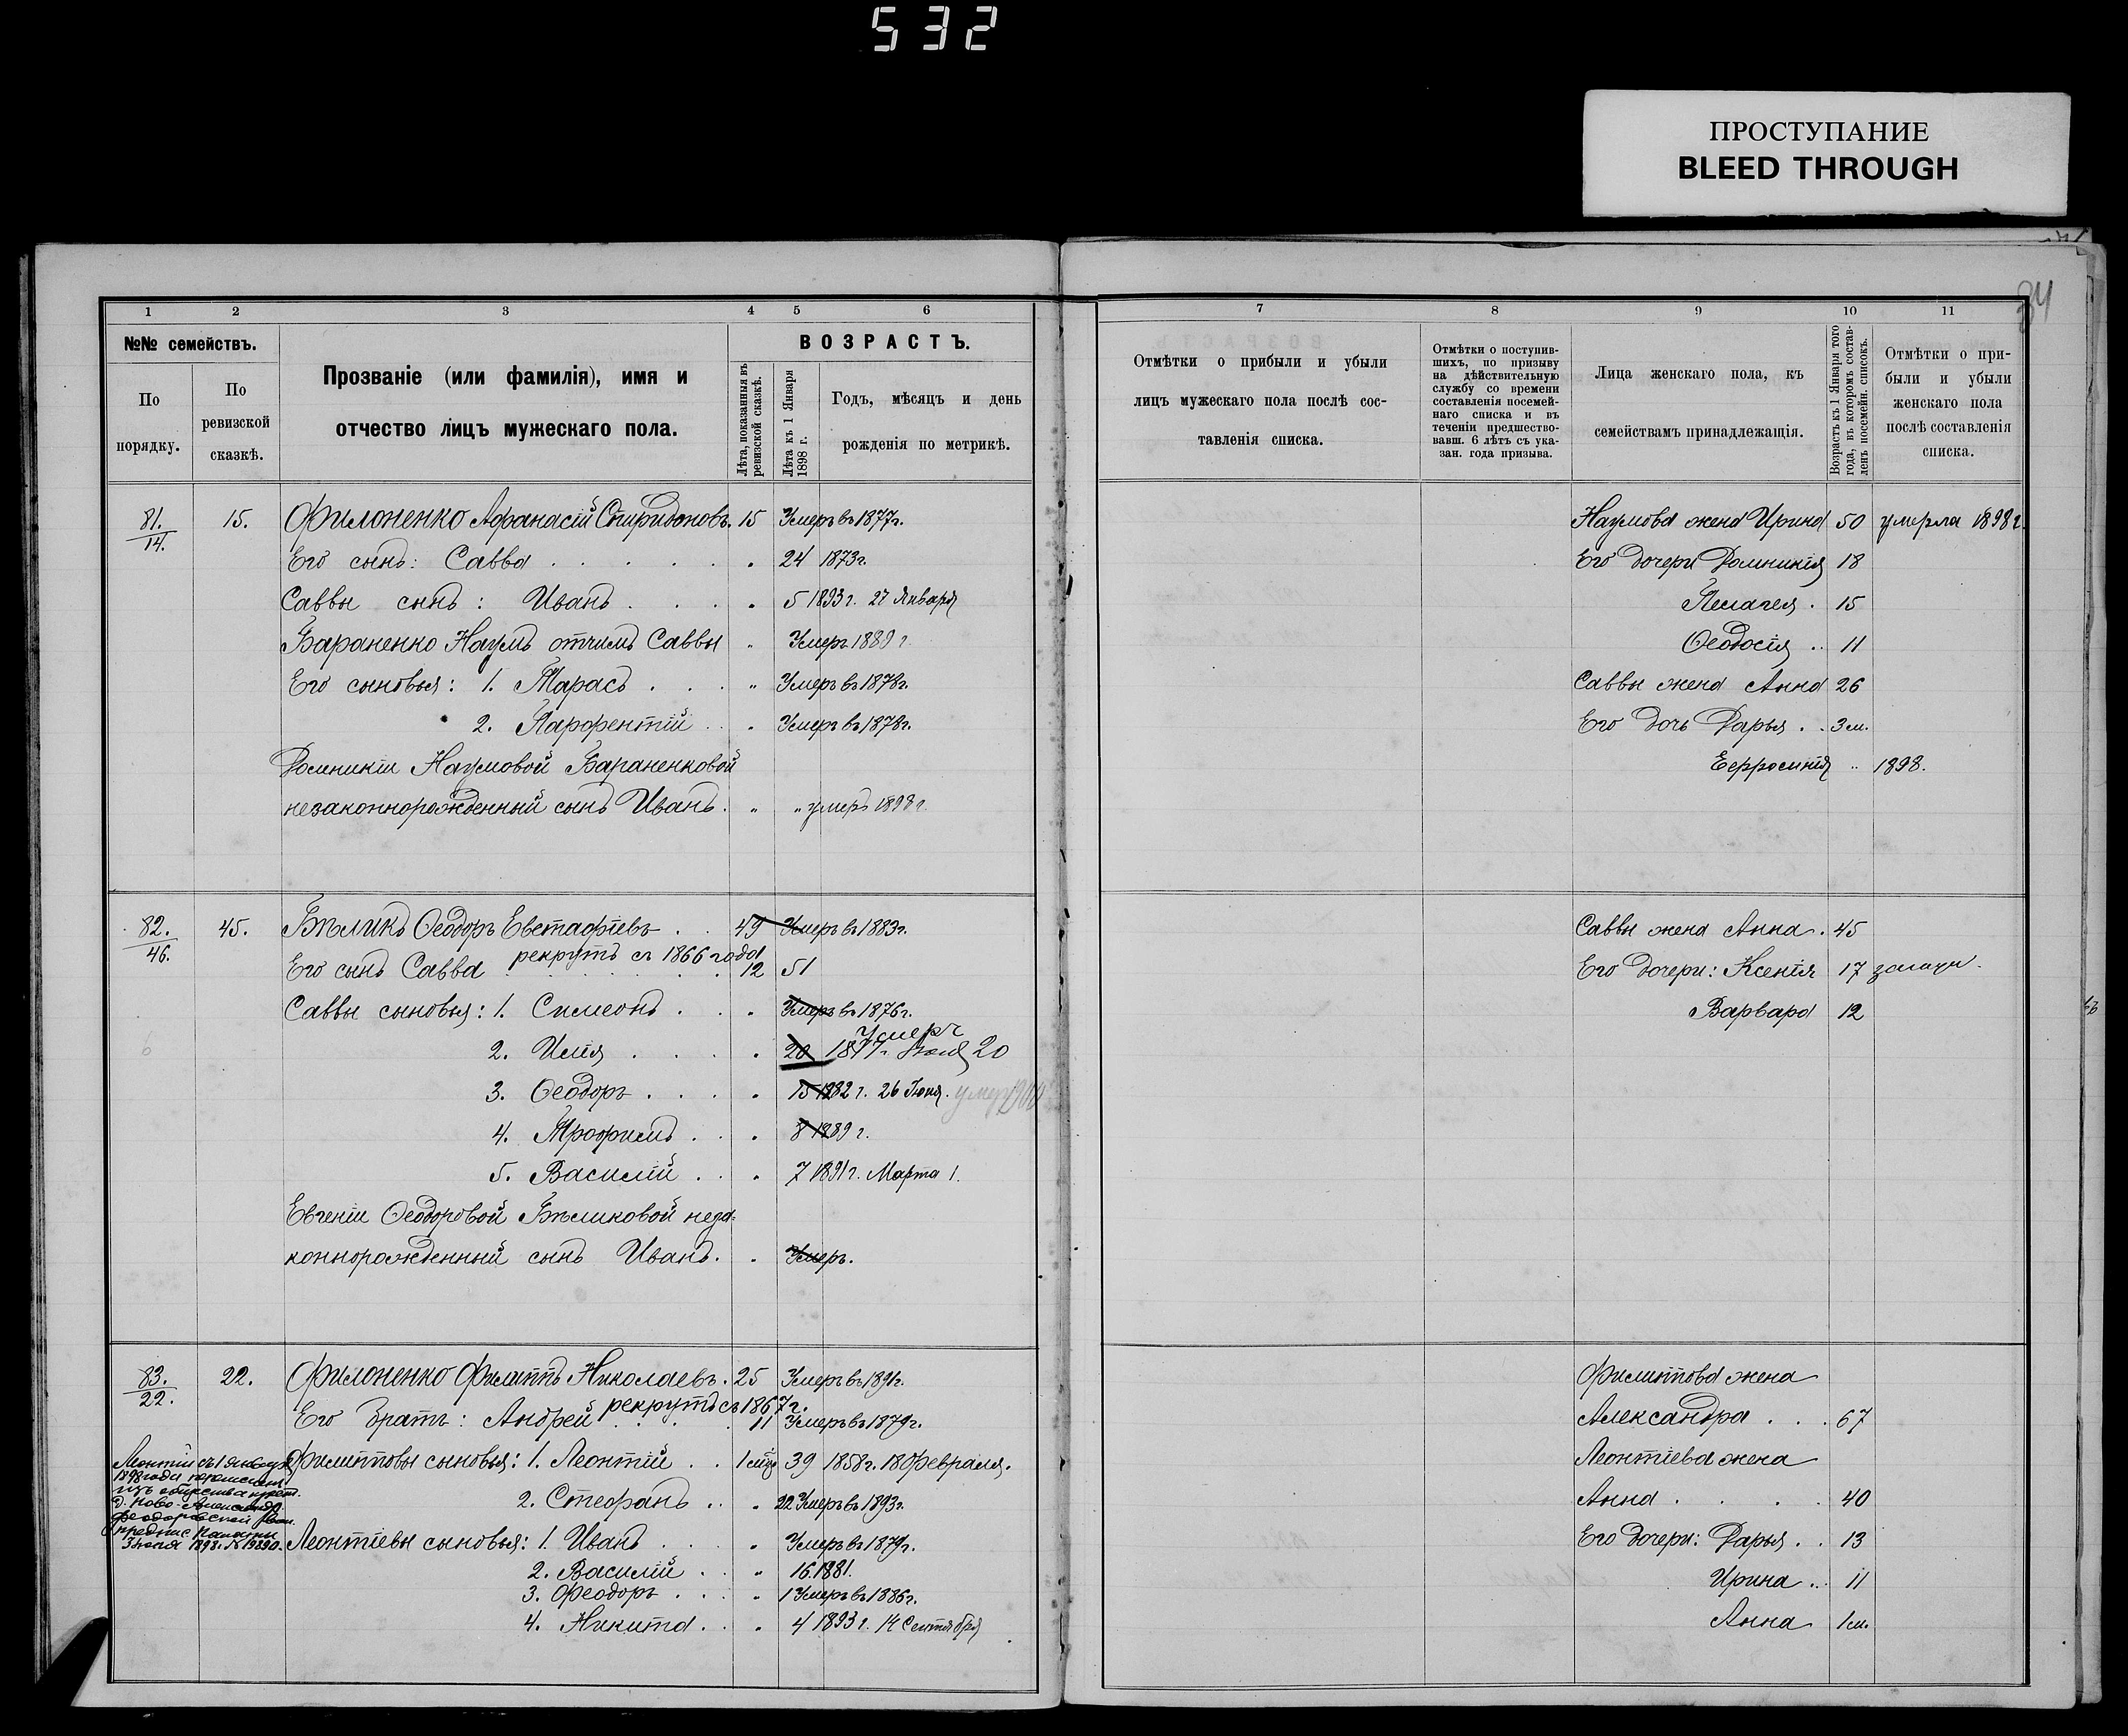 532
ПРОСТУПАНИЕ
BLEED THROUGH
34
1 2 3 4 5 6
№№ семействъ.
По порядку.
По ревизской сказкѣ.
Прозваніе (или фамилія), имя и
отчество лицъ мужескаго пола.
ВОЗРАСТЪ.
Лѣта, показанныя въ ревизской сказкѣ.
Лѣта къ 1 Января 1898 г.
Годъ, мѣсяцъ и день
рожденія по метрикѣ.
81. 15. Филоненко Афанасій Спиридоновъ. 15 Умеръ въ 1877г.
14.
Его сынъ: Савва . . . . . 24 1873г.
Саввы сынъ: Иванъ . . . . 5 1893г. 27 Января
Бараненко Наумъ отчимъ Саввы " Умеръ 1889 г.
Его сыновья: 1. Тарасъ . . . " Умеръ въ 1878г.
2. Парфентій . . Умеръ въ 1878г.
Домникіи Наумовой Бараненковой
незаконнорожденный сынъ Иванъ. " " умеръ 1898 г.
82. 45. Бѣликъ Ѳеодоръ Евстафіевъ . . 49 Умеръ въ 1883г.
46.
рекрутъ съ 1866 года
Его сынъ Савва . . . 12 51
Саввы сыновья: 1. Симеонъ . . . Умеръ въ 1876г.
Умеръ
2. Илія . . . . 20 1877г. Іюля 20
3. Ѳеодоръ . . . . 15 1882 г. 26 Іюня. умеръ 1900
4. Трофимъ . . . 8 1889 г.
5. Василій . . . 7 1891г. Марта 1.
Евгеніи Ѳеодоровой Бѣликовой неза-
коннорожденный сынъ Иванъ. . Умеръ.
83. 22. Филоненко Филиппъ Николаевъ. 25 Умеръ въ 1891г.
22.
рекрутъ съ 1867 г.
Его братъ: Андрей . . . 11 Умеръ въ 1879г.
Леонтій съ 1 января
1898 года перечисленъ
изъ общества крест.
д. Ново-Александр.
Феодоровской вол.
предпис. Палаты
3 іюля 1898 г. № 19890.
Филипповы сыновья: 1. Леонтій . . 39 1858г. 18 Февраля.
2. Стефанъ . . . 22 Умеръ въ 1893г.
Леонтіевы сыновья: 1. Иванъ . . . Умеръ въ 1879г.
2. Василій . . " 16. 1881.
3. Феодоръ . . . " 1 Умеръ въ 1886г.
4. Никита . . . 4 1893 г. 14 Сентября
7 8 9 10 11
Отмѣтки о прибыли и убыли
лицъ мужескаго пола послѣ сос-
тавленія списка.
Отмѣтки о поступив-
шихъ, по призыву
на дѣйствительную
службу со времени
составленія посемей-
наго списка и въ
теченіи предшество-
вавш. 6 лѣтъ съ ука-
зан. года призыва.
Лица женскаго пола, къ
семействамъ принадлежащія.
Возрастъ къ 1 Января того
года, въ которомъ состав-
ленъ посемейн. списокъ.
Отмѣтки о при-
были и убыли
женскаго пола
послѣ составленія
списка.
Наумова жена Ирина 50 умерла 1898г.
Его дочери Домникія 18
Пелагея . 15
Ѳеодосія .. 11
Саввы жена Анна 26
Его дочь Дарья . . 3 м.
Евфросинія " 1898.
Саввы жена Анна. 45
Его дочери: Ксенія 17 замуж.
Варвара 12
Филиппова жена
Александра . . . 67
Леонтіева жена
Анна . . . . 40
Его дочери: Дарья . . 13
Ирина ... 11
Анна 1 м.